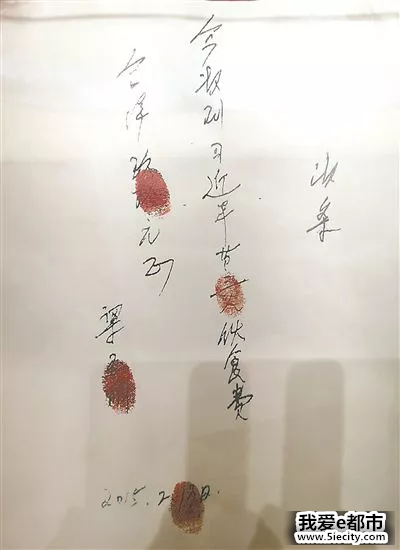 收条
今收到习近平 伙食费
合洋 元正
梁
2015.2.1 日.
我爱e都市
www.5iecity.com